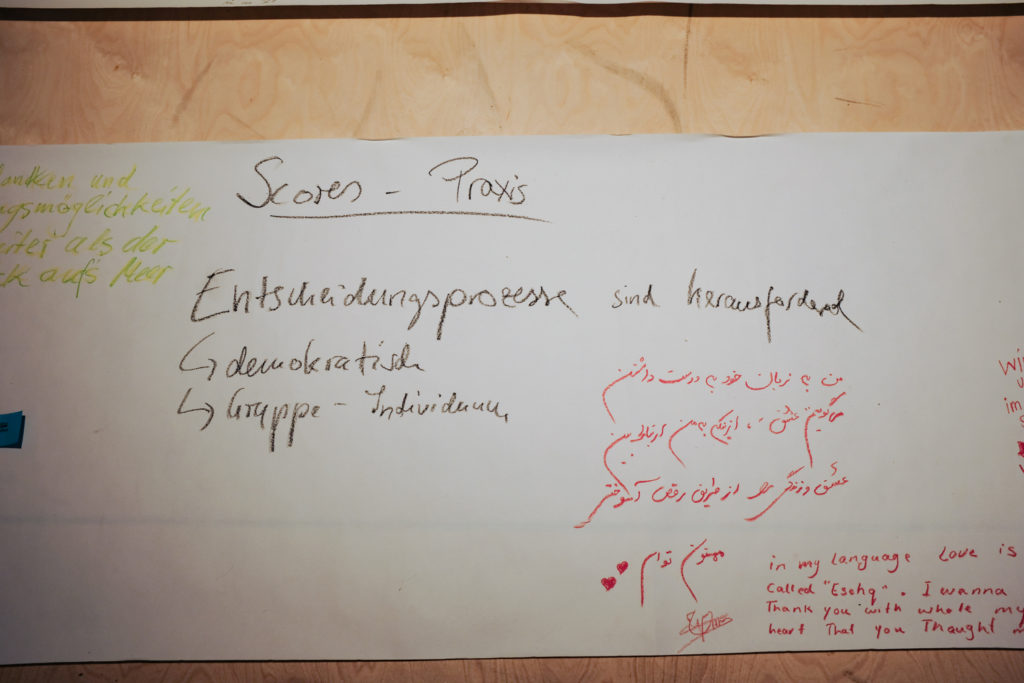 und
ngsmöglichkeiten
als der
auf's Meer
Scores - Praxis
Entscheidungsprozesse sind herausfordernd
↳ demokratisch
↳ Gruppe - Individuum
من به زبان خود به دوست داشتن
می‌گوییم عشق ازینکه به من ارتباط بین
عشق و زندگی را از طریق رقص آموختی
ممنون توام
in my language Love is
called "Eschq". I wanna
Thank you with whole my
heart That you Thought